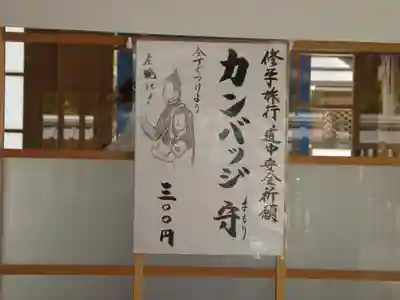 修学旅行道中安全祈願
カンバッジ守
まもり
今すぐつけよう
三〇〇円